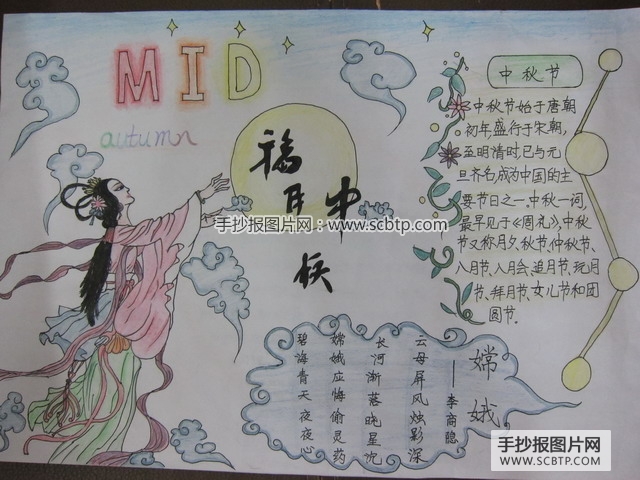 MID
autumn
福
月中
秋
手抄报图片网：www.scbtp.com
中秋节
中秋节始于唐朝
初年,盛行于宋朝,
至明清时,已与元
旦齐名,成为中国的主
要节日之一。中秋一词,
最早见于《周礼》,中秋
节又称月夕、秋节、仲秋节、
八月节、八月会、追月节、玩月
节、拜月节、女儿节和团
圆节。
嫦娥
——李商隐
云母屏风烛影深
长河渐落晓星沉
嫦娥应悔偷灵药
碧海青天夜夜心
手抄报图片网
WWW.SCBTP.COM